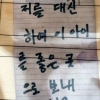 저를 대신
하여 이 아이
를 좋은 곳
으로 보내